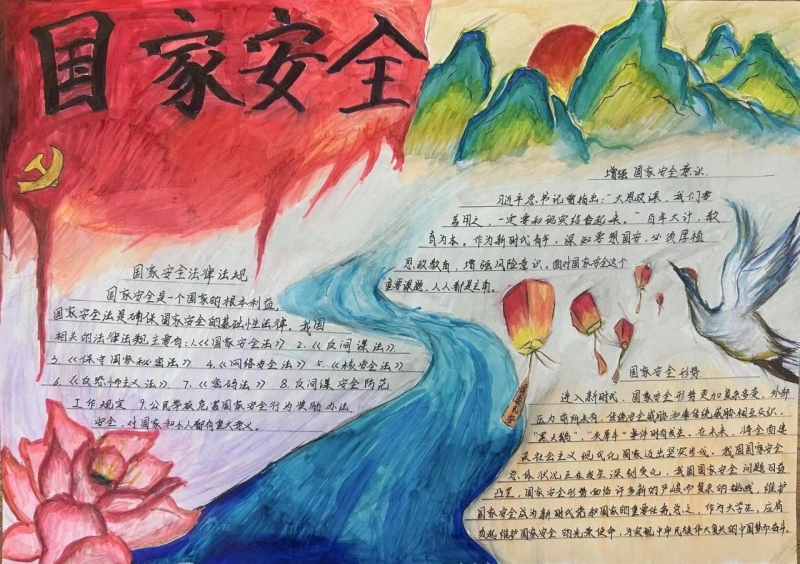 国家安全
增强国家安全意识.
习近平总书记曾指出:“大思政课,我们要
善用之,一定要和现实结合起来。”百年大计,教
育为本。作为新时代青年,深知要想国安,必须厚植
思政教育,增强风险意识。面对国家安全这个
重要课题,人人都是主角。
国家安全法律法规
国家安全是一个国家的根本利益,
国家安全法是确保国家安全的基础性法律。我国
相关的法律法规主要有:1.《国家安全法》 2.《反间谍法》
3.《保守国家秘密法》 4.《网络安全法》 5.《核安全法》
6.《反恐怖主义法》 7.《密码法》 8.反间谍安全防范
工作规定 9.公民举报危害国家安全行为奖励办法.
安全,对国家和个人都有重大意义。
国家安全形势
进入新时代,国家安全形势更加复杂多变,外部
压力前所未有,传统安全威胁和非传统威胁相互交织,
“黑天鹅”,“灰犀牛”事件时有发生。在未来,将全面建
设社会主义现代化国家迈出坚实步伐,我国国家安全
总体状况正在发生深刻变化,我国国家安全问题日益
凸显,国家安全形势面临许多新的严峻而复杂的挑战,维护
国家安全成为新时代党和国家的重要任务。总之,作为大学生,应肩
负起维护国家安全的光荣使命,为实现中华民族伟大复兴的中国梦而奋斗。